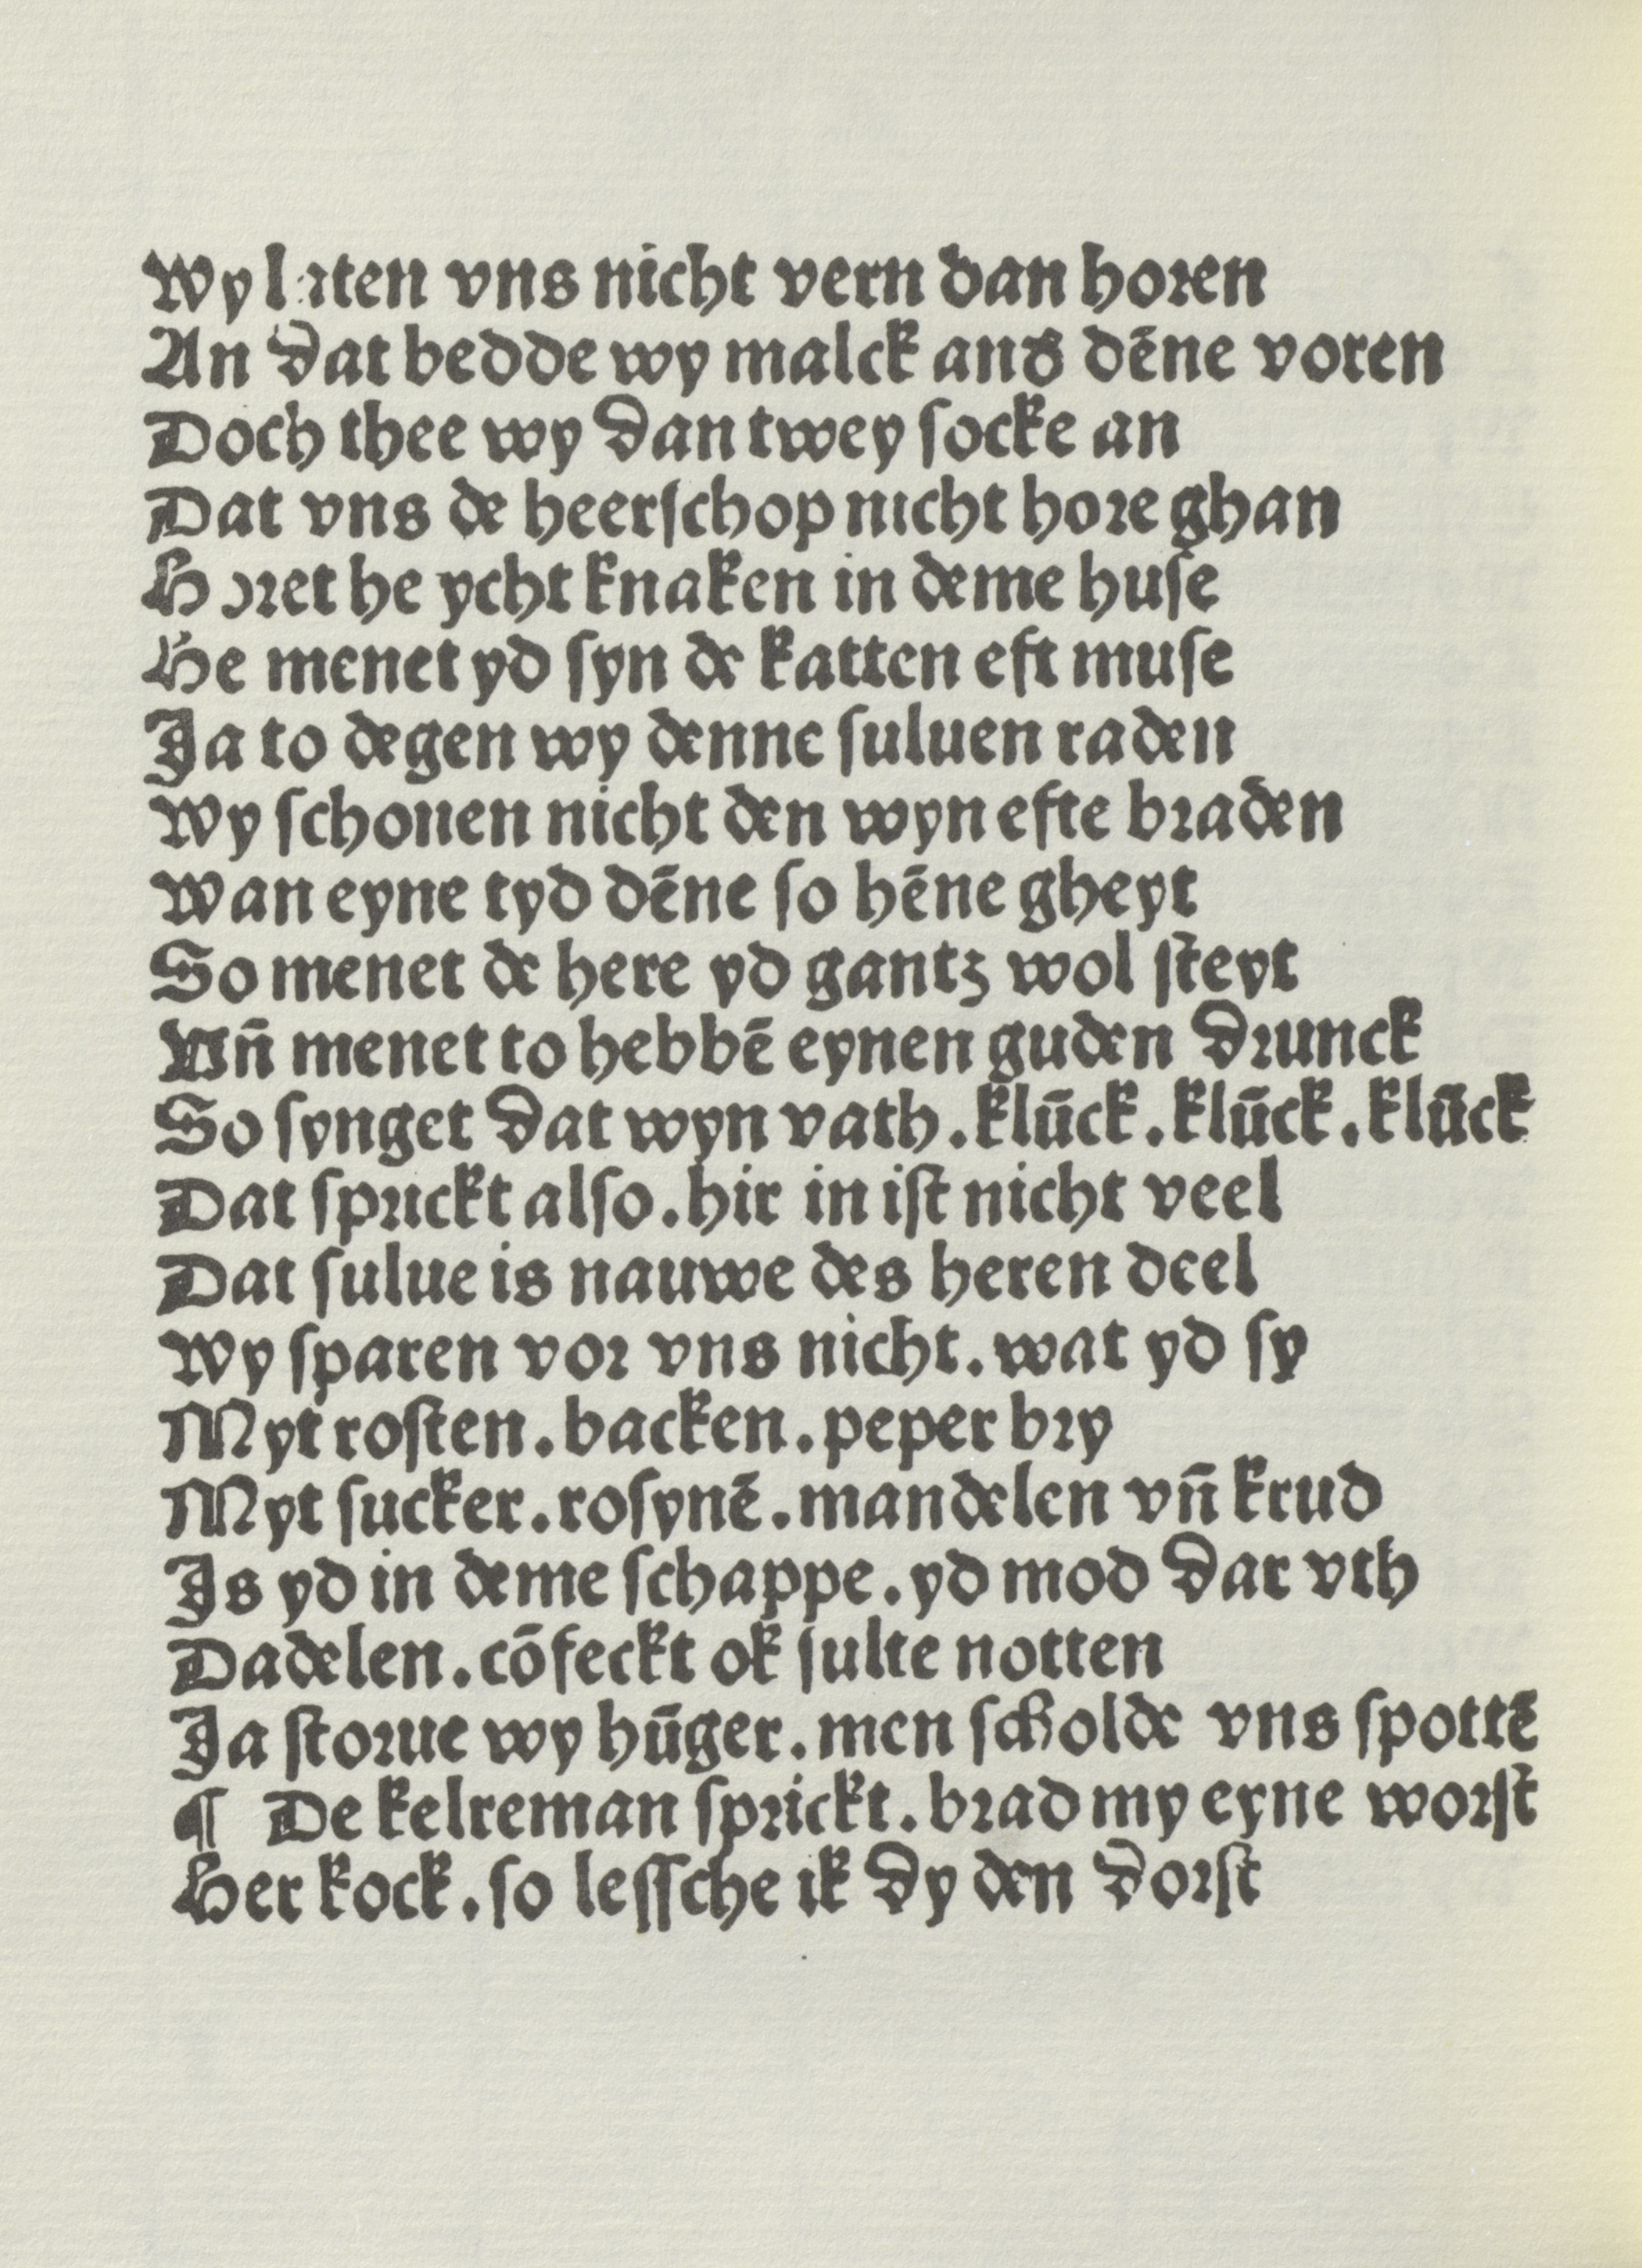 Wy laten vns nicht vern dan horen
An dat bedde wy malck and dēne voren
Doch thee wy dan twey socke an
Dat vns de heerschop nicht hore ghan
Horet he ycht knaken in deme huse
He menet yd syn de katten eft muse
Ja to degen wy denne suluen raden
Wy schonen nicht den wyn efte braden
Wan eyne tyd dēne so hēne gheyt
So menet de here yd gantz wol steyt
Vn̄ menet to hebbē eynen guden drunck
So synget dat wyn vath . klūck . klūck . klūck
Dat sprickt also . hir in ist nicht veel
Dat sulue is nauwe des heren deel
Wy sparen vor vns nicht . wat yd sy
Myt rosten . backen . peper bry
Myt sucker . rosynē . mandelen vn̄ krud
Js yd in deme schappe . yd mod dar vth
Dadelen . cōfeckt ok sulte notten
Ja storue wy hūger . men scholde vns spottē
¶ De kelreman sprickt . brad my eyne worst
Her kock . so lessche ik dy den dorst